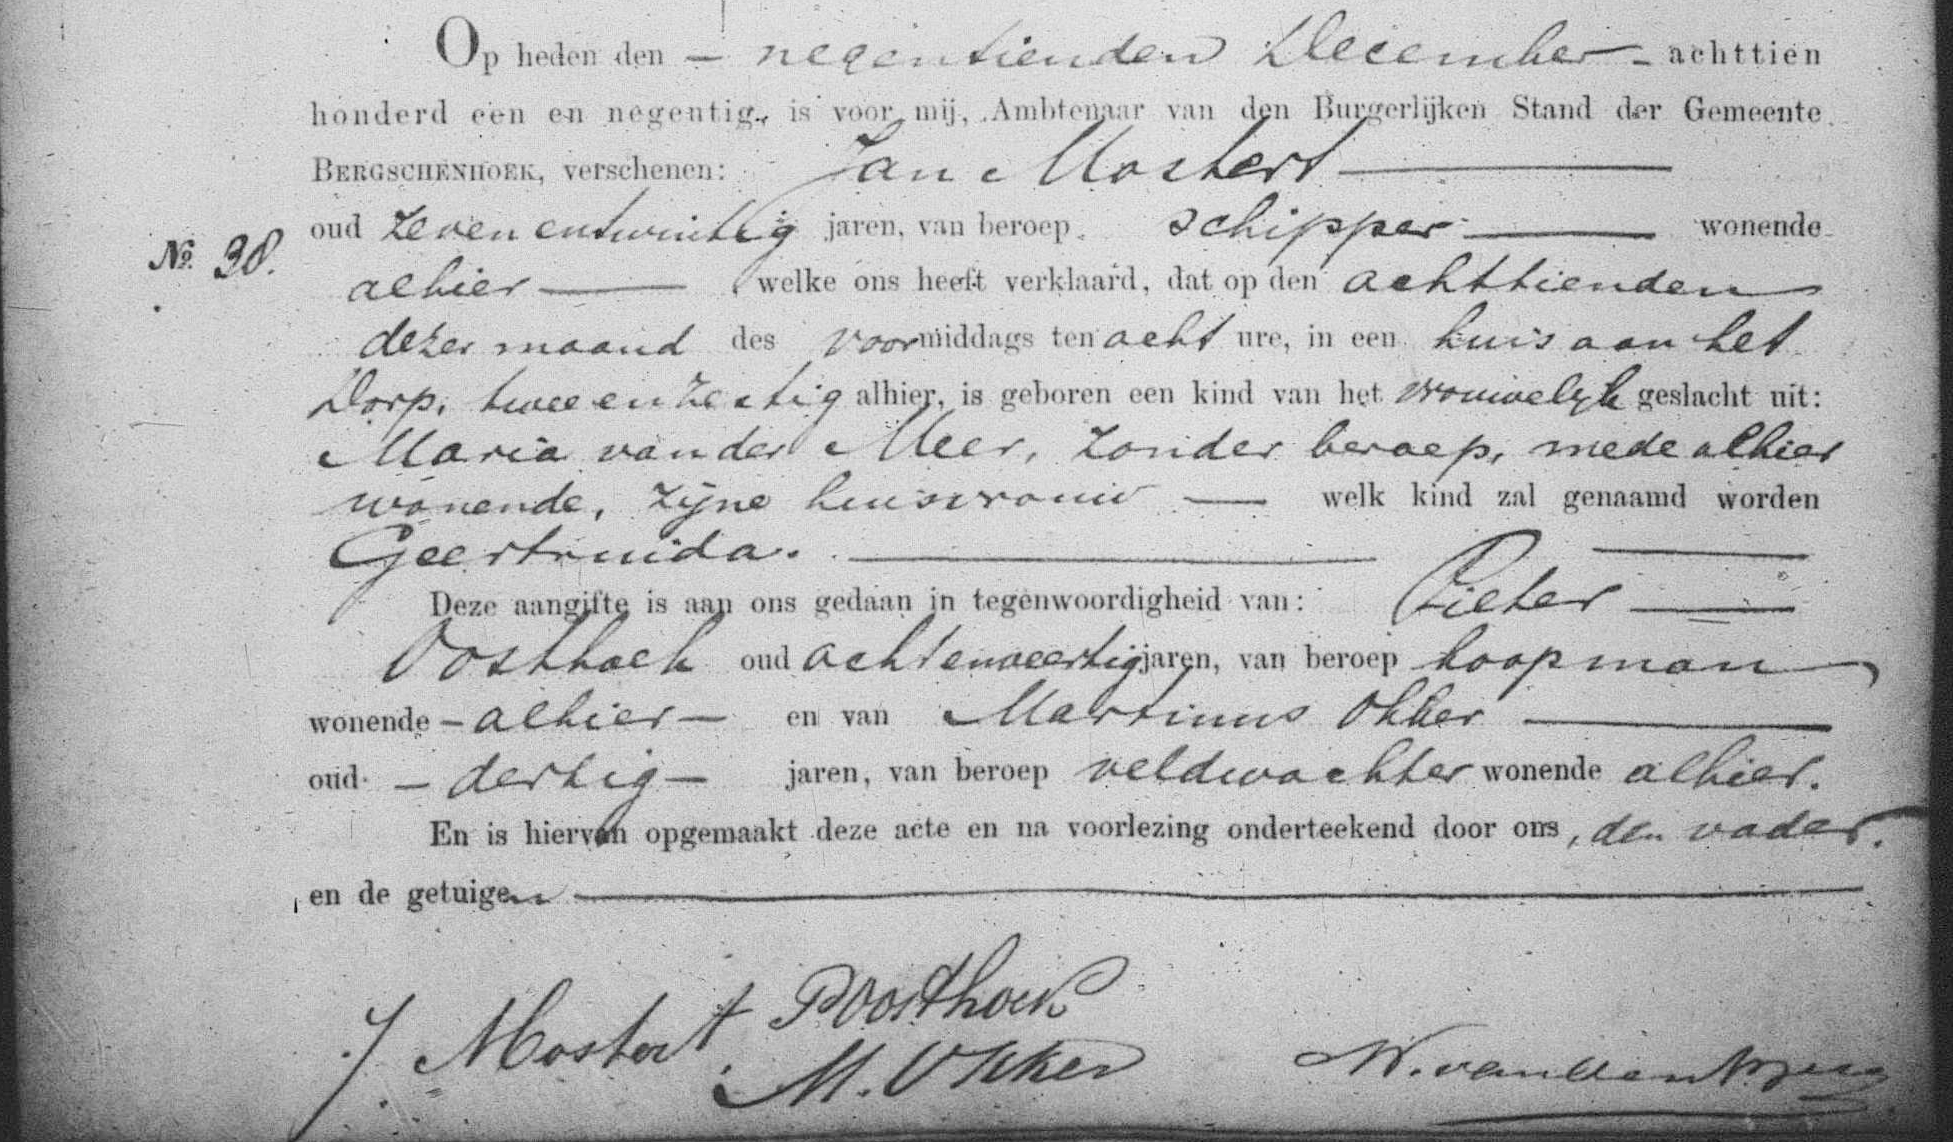 Op heden den – negentienden December – achttien
honderd een en negentig, is voor mij, Ambtenaar van den Burgerlijken Stand der Gemeente
BERGSCHENHOEK, verschenen: Jan Mostert
oud zevenentwintig jaren, van beroep schipper wonende
No. 38.
alhier welke ons heeft verklaard, dat op den achttienden
dezer maand des voormiddags ten acht ure, in een huis aan het
Dorp, tweeenzestig alhier, is geboren een kind van het vrouwelijk geslacht uit:
Maria van der Meer, zonder beroep, mede alhier
wonende, zijne huisvrouw – welk kind zal genaamd worden
Geertruida.
Deze aangifte is aan ons gedaan in tegenwoordigheid van: Pieter
Oosthoek oud achtenveertig jaren, van beroep koopman
wonende – alhier – en van Martinus Okker
oud – dertig – jaren, van beroep veldwachter wonende alhier.
En is hiervan opgemaakt deze acte en na voorlezing onderteekend door ons, den vader,
en de getuigen
P Oosthoek
J Mostert
M. Okker